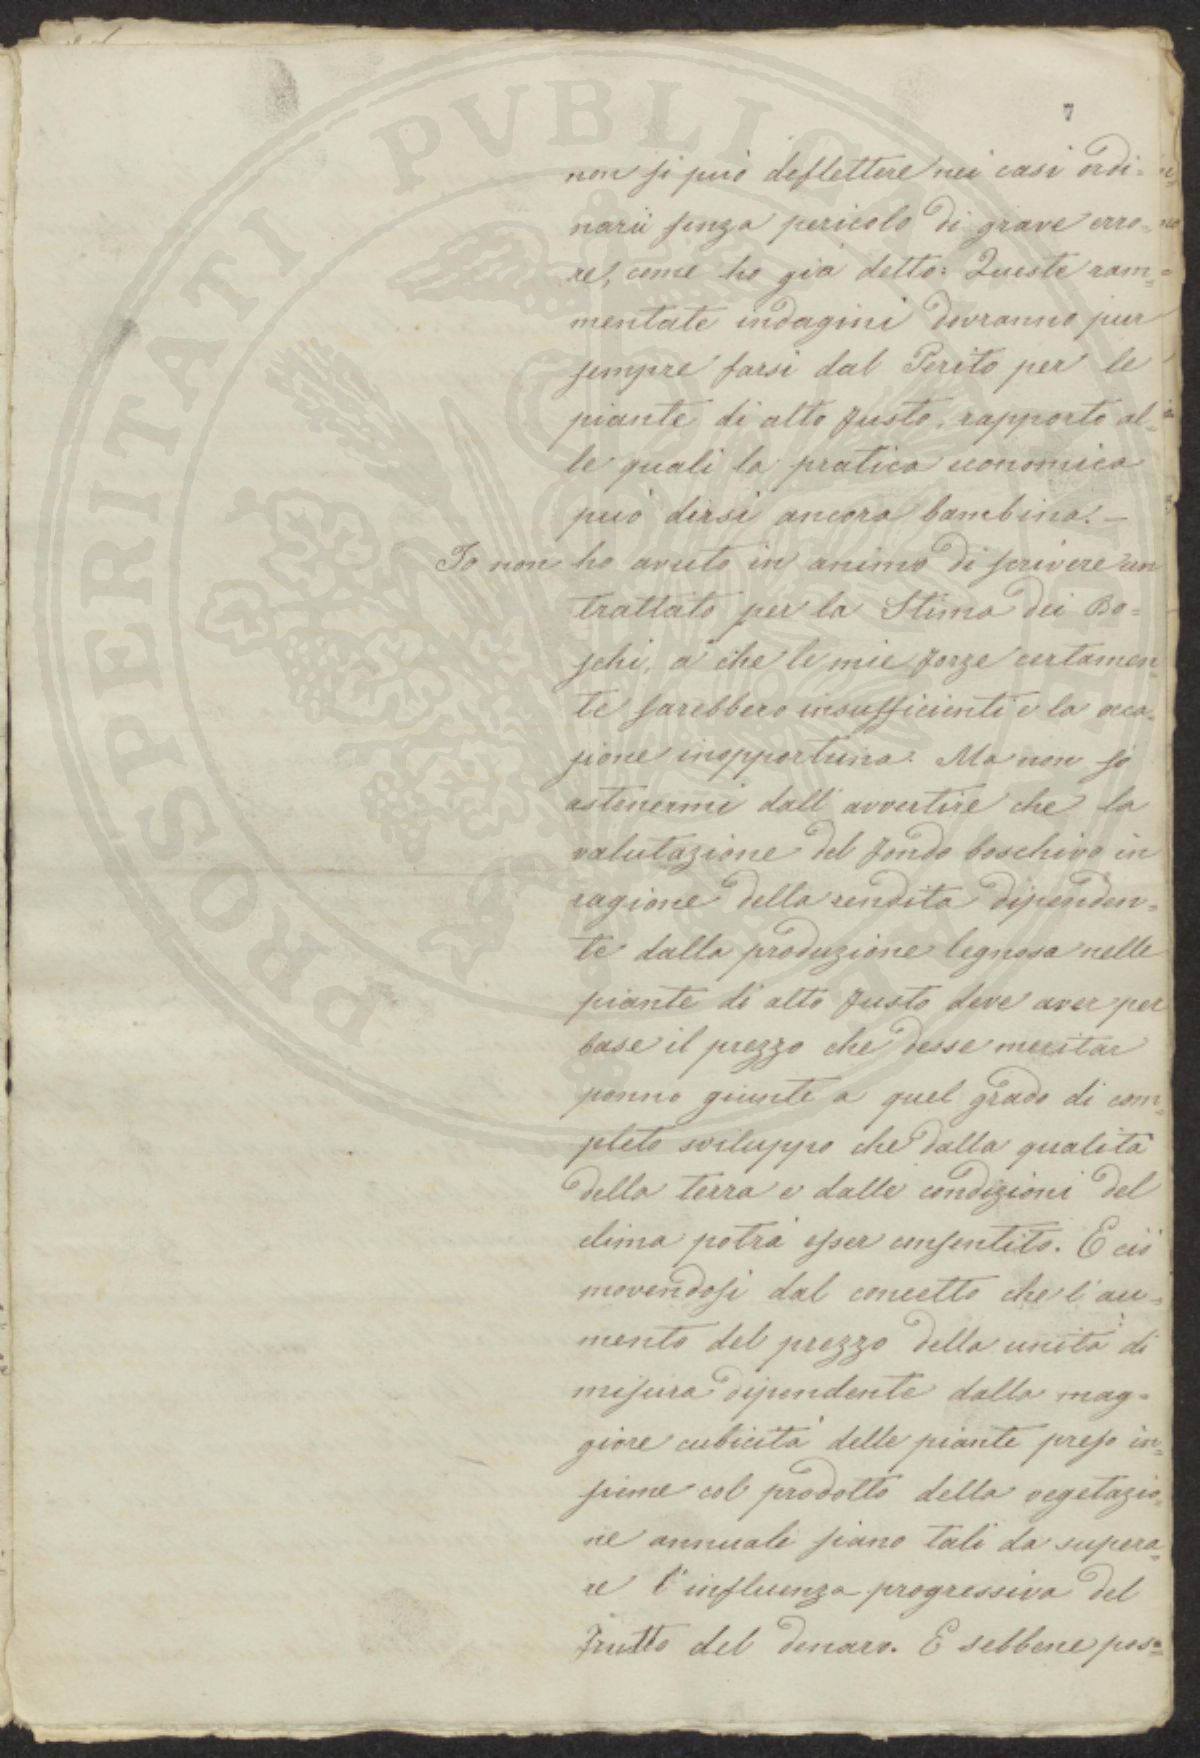 PROSPERITATI PVBLICAE
7
non si può deflettere nei casi ordi-
narii senza pericolo di grave erro-
re, come ho già detto: Queste ram-
mentate indagini dovranno pur
sempre farsi dal Perito per le
piante di alto fusto, rapporto al-
le quali la pratica economica
può dirsi ancora bambina. —
Io non ho avuto in animo di scrivere un
trattato per la Stima dei Bo-
schi, a che le mie forze certamen-
te sarebbero insufficienti e la occa-
sione inopportuna. Ma non so
astenermi dall'avvertire che la
valutazione del fondo boschivo in
ragione della rendita dipenden-
te dalla produzione legnosa nelle
piante di alto fusto deve aver per
base il prezzo che desse meritar
ponno giunte a quel grado di com-
pleto sviluppo che dalla qualità
della terra e dalle condizioni del
clima potrà esser consentito. E ciò
movendosi dal concetto che l'au-
mento del prezzo della unità di
misura dipendente dalla mag-
giore cubicità delle piante preso in-
sieme col prodotto della vegetazio-
ne annuale siano tali da supera-
re l'influenza progressiva del
frutto del denaro. E sebbene pos-